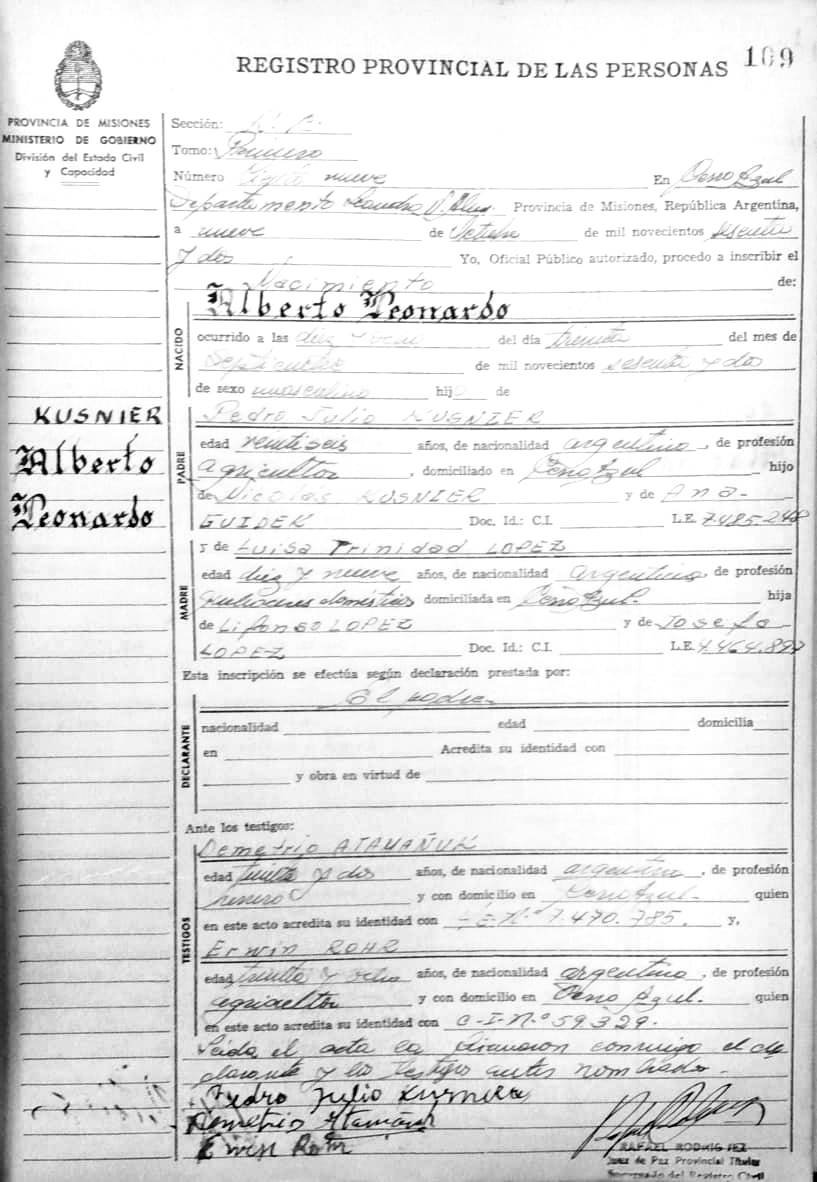 REGISTRO PROVINCIAL DE LAS PERSONAS 109
PROVINCIA DE MISIONES
MINISTERIO DE GOBIERNO
División del Estado Civil
y Capacidad
Sección:
Tomo: Primero
Número nueve En Cerro Azul
Departamento Leandro N. Alem. Provincia de Misiones, República Argentina,
a nueve de Octubre de mil novecientos sesenta
y dos Yo, Oficial Público autorizado, procedo a inscribir el
Nacimiento de:
NACIDO
Alberto Leonardo
ocurrido a las diez y del día treinta del mes de
Septiembre de mil novecientos sesenta y dos
de sexo masculino hijo de
KUSNIER
Alberto
Leonardo
PADRE
Pedro Julio KUSNIER
edad veintiseis años, de nacionalidad argentino, de profesión
agricultor, domiciliado en Cerro Azul hijo
de Nicolás KUSNIER y de Ana-
GUIDEK Doc. Id.: C.I. L.E. 7.485.248
MADRE
y de Luisa Trinidad LOPEZ
edad diez y nueve años, de nacionalidad argentina de profesión
quehaceres domésticos domiciliada en Cerro Azul. hija
de LOPEZ y de Josefa
LOPEZ Doc. Id.: C.I. L.E. 4.464.897
Esta inscripción se efectúa según declaración prestada por:
DECLARANTE
El padre-
nacionalidad edad domicilia
en Acredita su identidad con
y obra en virtud de
Ante los testigos:
TESTIGOS
Demetrio ATAMAÑUK
edad treinta y dos años, de nacionalidad argentino, de profesión
y con domicilio en Cerro Azul- quien
en este acto acredita su identidad con L.E. N.º 7.470.785. y,
Erwin ROHR
edad treinta y ocho años, de nacionalidad argentino, de profesión
agricultor y con domicilio en Cerro Azul- quien
en este acto acredita su identidad con C-I-N.º 59.329.
Leída el acta la firmaron conmigo el de
clarante y los testigos antes nombrados-
Pedro Julio Kusnier
Demetrio Atamañuk
Erwin Rohr
RAFAEL RODRIGUEZ
Juez de Paz Provincial Titular
Encargado del Registro Civil